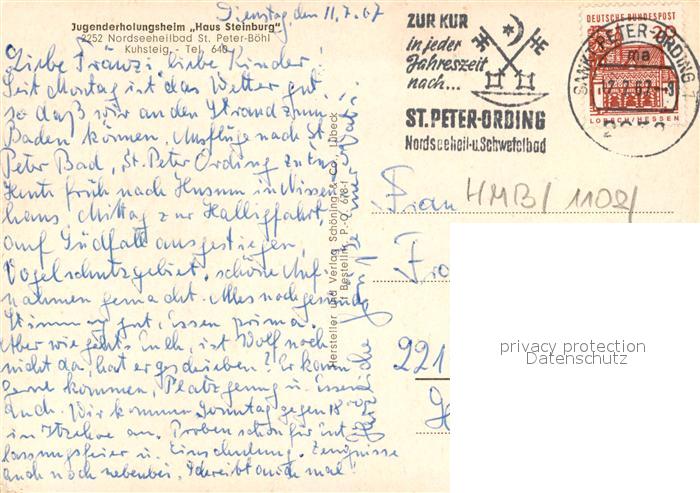 Dienstag, den 11.7.67
Jugenderholungsheim „Haus Steinburg"
2252 Nordseeheilbad St. Peter-Böhl
Kuhsteig, - Tel. 648
Liebe Fränzi, liebe Kinder!
Seit Montag ist das Wetter gut,
so daß wir an den Strand zum
Baden können. Ausflüge nach St.
Peter Bad, St. Peter Ording zu
Heute früh nach Husum in Nissen-
haus, Mittag zur Halligfahrt,
auf Südfall ausgestiegen,
Vogelschutzgebiet. schöne Auf-
nahmen gemacht. Alles noch gesund,
Stimmung gut, Essen prima.
Aber wie gehts Euch, ist Wolf noch
nicht da, hat er geschrieben? Er kann
gerne kommen, Platz genug u. Essen
auch. Wir kommen Sonntag gegen 18
in Itzehoe an. Proben schon für Ent-
lassungsfeier u. Einschulung. Zeugnisse
auch noch nebenbei, Schreibt auch mal!
Herzliche Grüße
Hersteller und Verlag Schöning & Co., Lübeck
Bestellnr. P.-O. 678-1
ZUR KUR
in jeder
Jahreszeit
nach...
ST. PETER-ORDING
Nordseeheil- u. Schwefelbad
DEUTSCHE BUNDESPOST
LORSCH/HESSEN
SANKT PETER-ORDING 1
ma
12.7.67
2252
Frau
HMB/1102/
221
privacy protection
Datenschutz